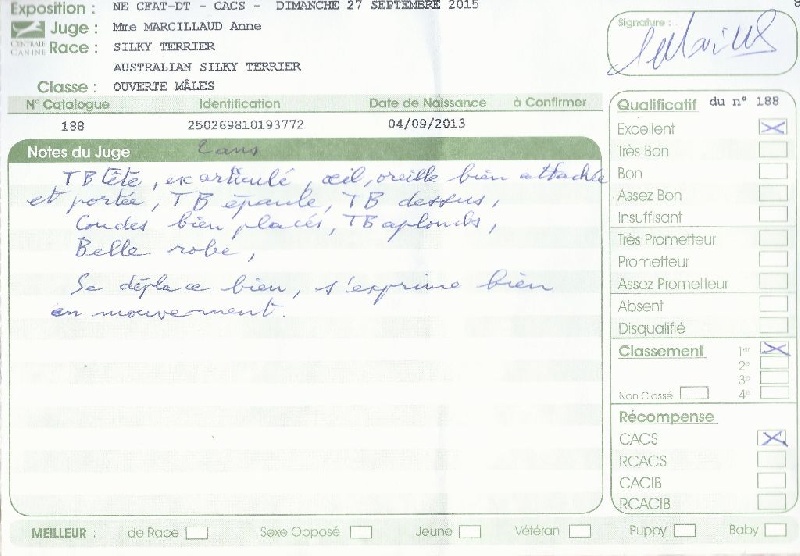 Exposition : NE CFAT-DT - CACS - DIMANCHE 27 SEPTEMBRE 2015 8
Juge : Mme MARCILLAUD Anne
CENTRALE CANINE
Race : SILKY TERRIER
AUSTRALIAN SILKY TERRIER
Classe : OUVERTE MÂLES
Signature :
N° Catalogue Identification Date de Naissance à Confirmer
188 250269810193772 04/09/2013
Notes du Juge 2 ans
TB tête, ex articulé, œil, oreille bien attachée
et portée, TB épaule, TB dessus,
Coudes bien placés, TB aplombs,
Belle robe,
Se déplace bien, s'exprime bien
en mouvement.
Qualificatif du n° 188
Excellent
Très Bon
Bon
Assez Bon
Insuffisant
Très Prometteur
Prometteur
Assez Prometteur
Absent
Disqualifié
Classement 1er
2e
3e
Non Classé 4e
Récompense
CACS
RCACS
CACIB
RCACIB
MEILLEUR : de Race Sexe Opposé Jeune Vétéran Puppy Baby